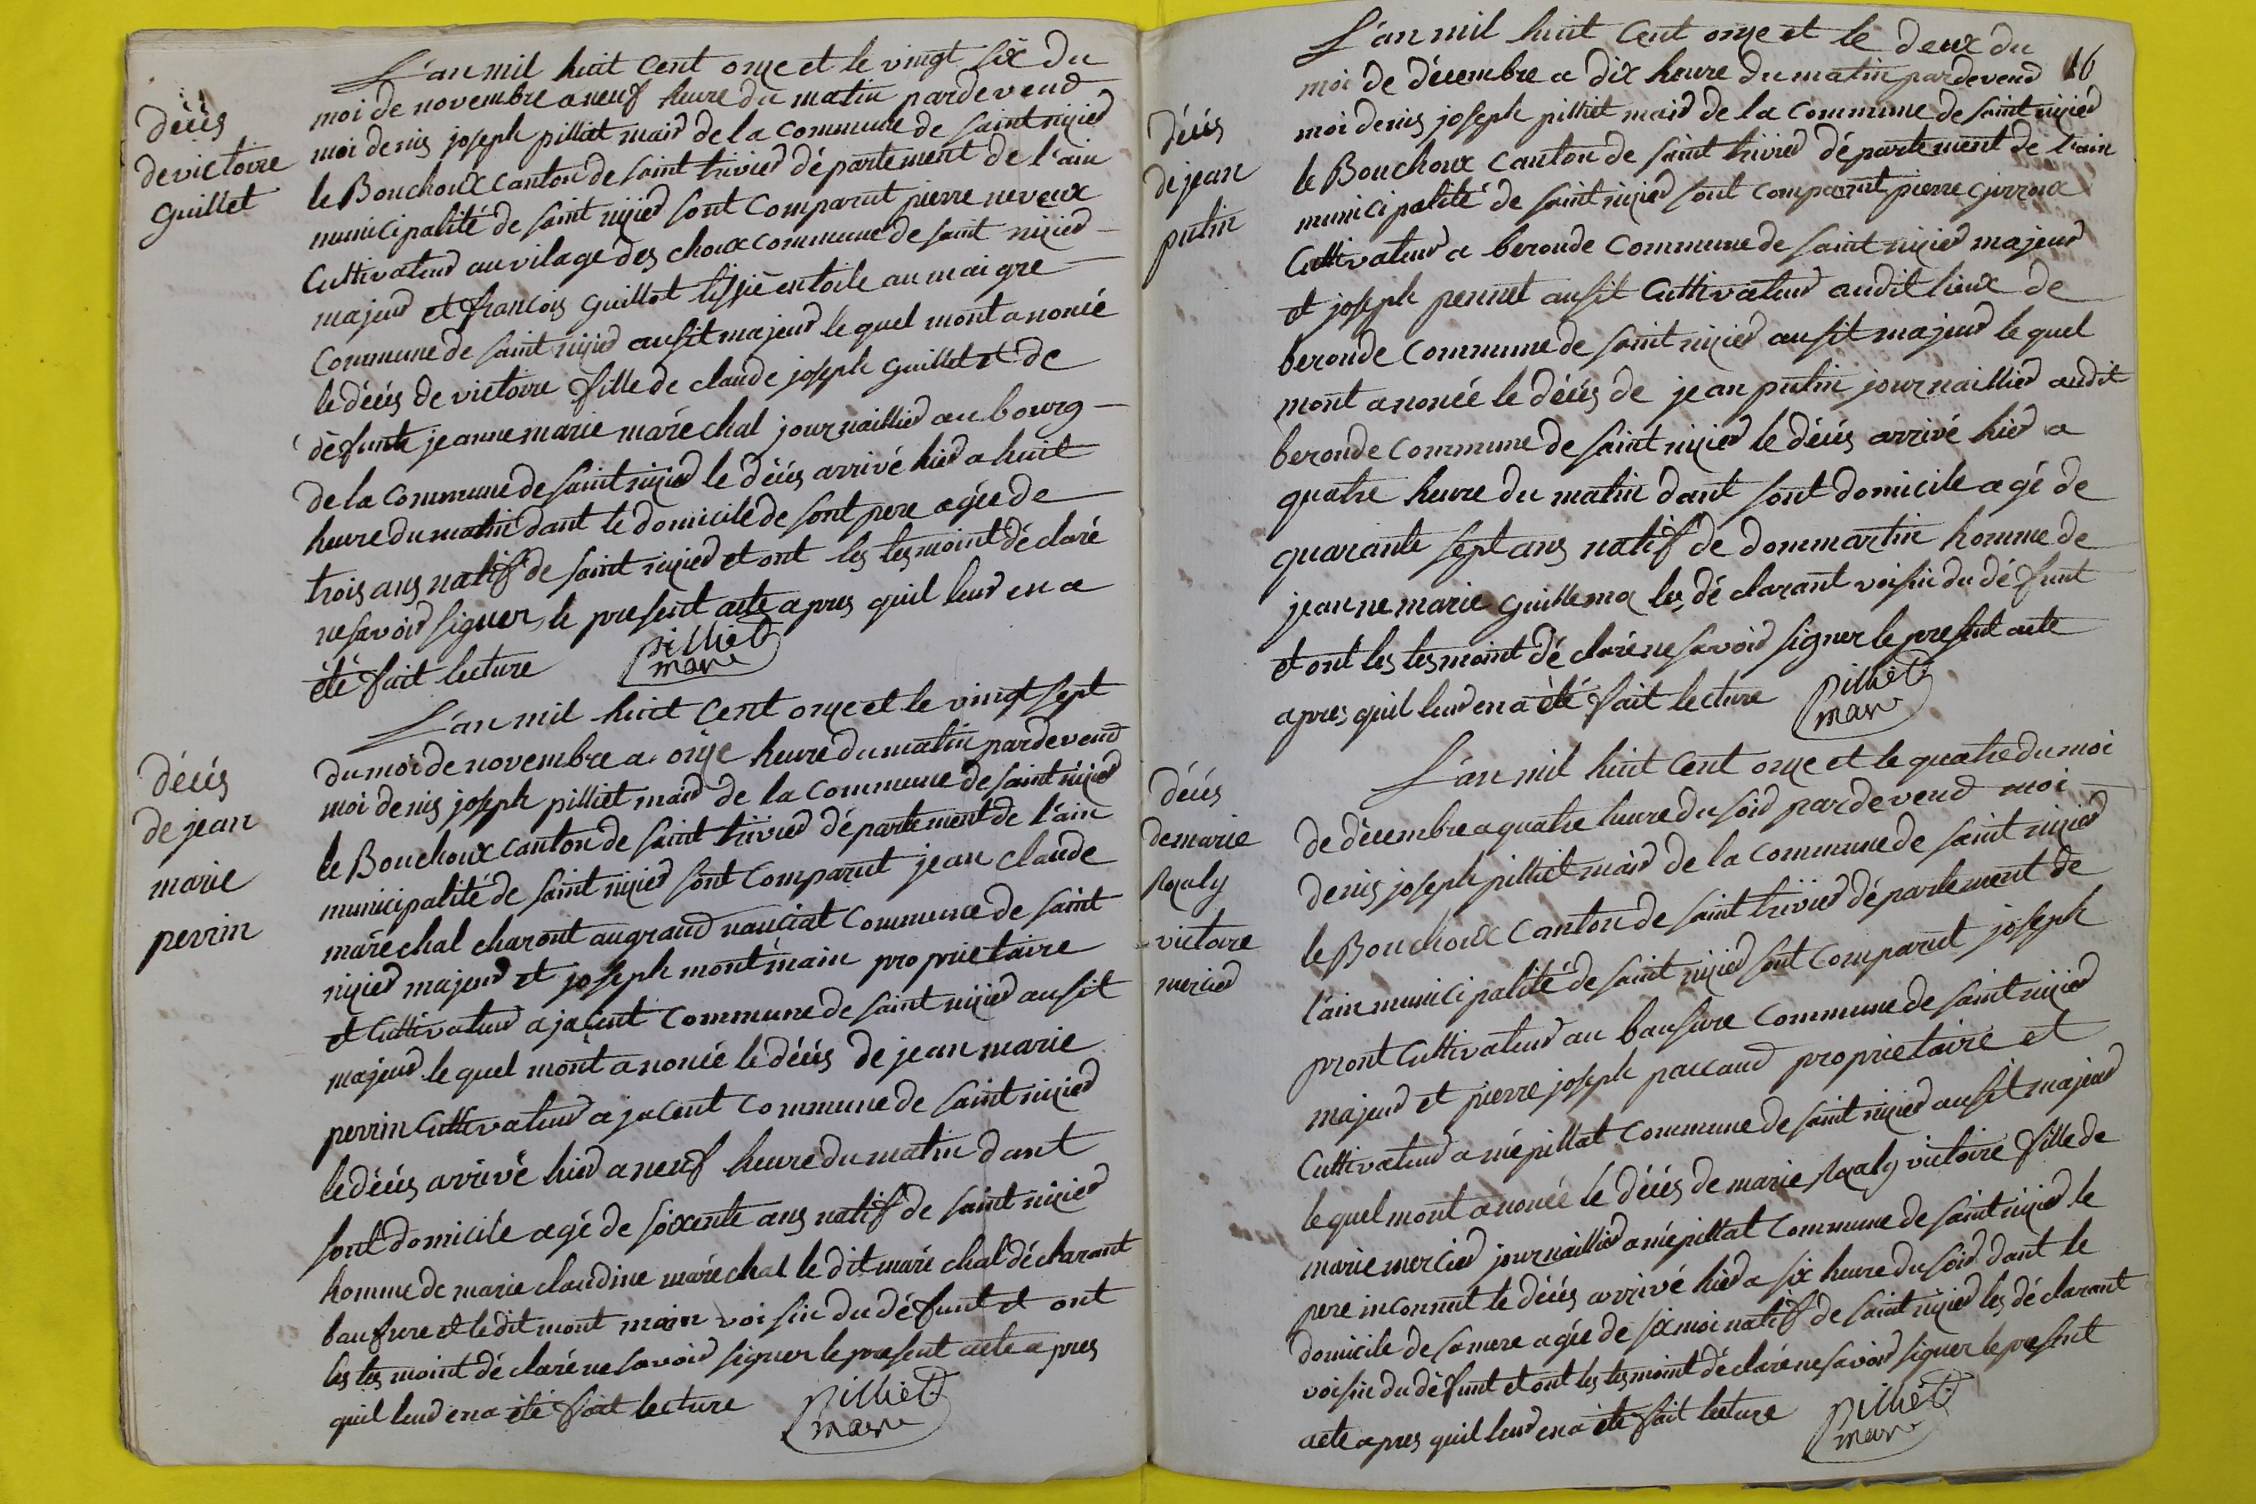 décès
de victoire
guillet
L'an mil huit cent onze et le vingt six du
moi de novembre a neuf heure du matin pardevend
moi denis joseph pilliet maird de la commune de saint nizied
le Bouchoux canton de saint trivied département de l'ain
municipalité de saint nizied sont comparut pierre neveux
cultivateud au vilage des choux commune de saint nizied
majeud et francois guillot tissié en toile au maigre
commune de saint nizied ausit majeud le quel mont anoncé
le décès de victoire fille de claude joseph guillet et de
défunte jeanne marie maréchal journaillied au bourg
de la commune de saint nizied le décés arrivé hied a huit
heure du matin dant le domicile de sont pere agée de
trois ans natif de saint nizied et ont les tesmoint déclaré
ne savoid signer le present acte apres quil leud en a
été fait lecture
pilliet
mare
décés
de jean
marie
perrin
L'an mil huit cent onze et le vingt sept
du moi de novembre a onze heure du matin pardevend
moi denis joseph pilliet maird de la commune de saint nizied
le Bouchoux canton de saint trivied département de l'ain
municipalité de saint nizied sont comparut jean claude
maréchal charont au grand nanciat commune de saint
nizied majeud et joseph montmain proprietaire
et cultivateud a jacent commune de saint nizied ausit
majeud le quel mont anoncé le décés de jean marie
perrin cultivateud a jacent commune de saint nizied
le décés arrivé hied a neuf heure du matin dant
sont domicile agé de soixente ans natif de saint nizied
homme de marie claudine maréchal le dit maréchal déclarant
baufrere et le dit mont main voisin du défunt et ont
les tesmoint déclaré ne savoid signer le present acte apres
quil leud en a été fait lecture
pilliet
mare
16
décés
de jean
putin
L'an mil huit cent onze et le deux du
moi de décembre a dix heure du matin pardevend
moi denis joseph pilliet maird de la commune de saint nizied
le Bouchoux canton de saint trivied département de l'ain
municipalité de saint nizied sont comparut pierre girroux
cultivateud a beronde commune de saint nizied majeud
et joseph pennet ausit cultivateud audit lieux de
beronde commune de saint nizied ausit majeud le quel
mont anoncé le décés de jean putin journaillied audit
beronde commune de saint nizied le décés arrivé hied a
quatre heure du matin dant sont domicile agé de
quarante sept ans natif de dommartin homme de
jeanne marie guillemox les déclarant voisin du défunt
et ont les tesmoint déclaré ne savoid signer le present acte
apres quil leud en a été fait lecture
pilliet
mare
décés
de marie
victoire
mercied
L'an mil huit cent onze et le quatre du moi
de décembre a quatre heure du soid pardevend moi
denis joseph pilliet maird de la commune de saint nizied
le Bouchoux canton de saint trivied département de
l'ain municipalité de saint nizied sont comparut joseph
pront cultivateud au baufure commune de saint nizied
majeud et pierre joseph paccaud proprietaire et
cultivateud a mépillat commune de saint nizied ausit majeud
le quel mont anoncé le décés de marie victoire fille de
marie mercied journaillied a mépillat commune de saint nizied le
pere inconnut le décés arrivé hied a six heure du soid dant le
domicile de sa mere agée de six moi natif de saint nizied les déclarant
voisin du défunt et ont les tesmoint déclaré ne savoid signer le present
acte apres quil leud en a été fait lecture
pilliet
mare